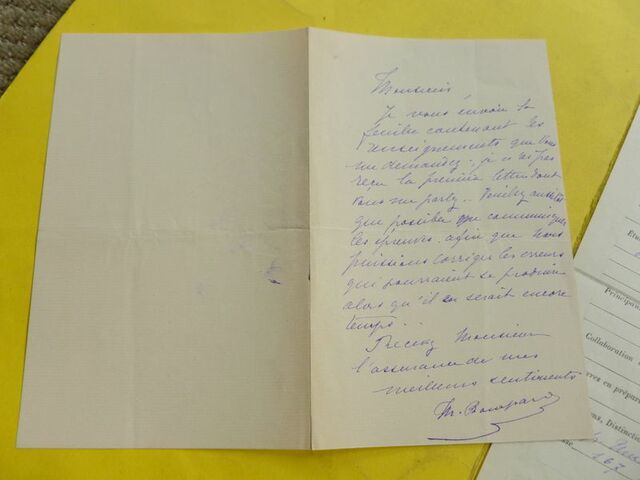 Monsieur
Je vous envoie la
feuille contenant les
renseignements que vous
me demandez. je n'ai pas
reçu la première lettre dont
vous me parlez. Veuillez aussitôt
que possible me communiquer
les épreuves. afin que nous
puissions corriger les erreurs
qui pourraient se produire
alors qu'il en serait encore
temps..
Recevez Monsieur
l'assurance de mes
meilleurs sentiments
M.
Principau
Collaboration
res en prépara
ons, Distinctio
167